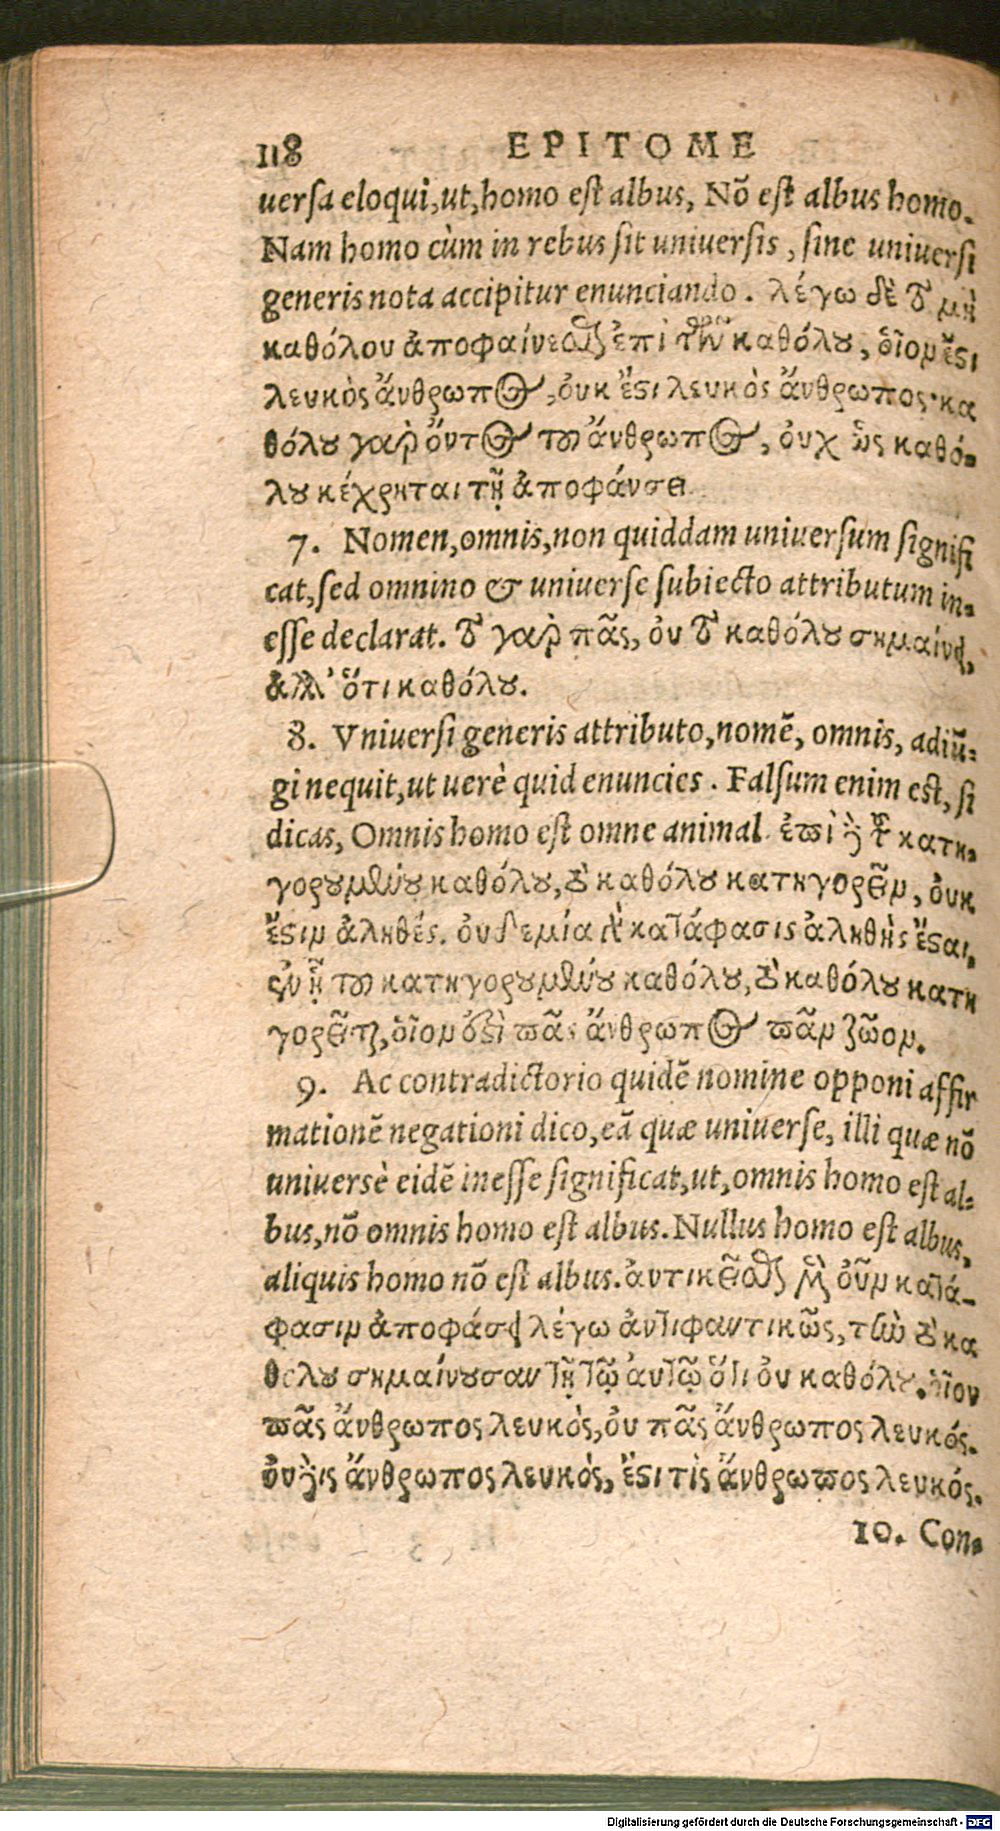 118 EPITOME
uersa eloqui, ut, homo est albus, Nõ est albus homo.
Nam homo cùm in rebus sit uniuersis, sine uniuersi
generis nota accipitur enunciando. λέγω δὲ τὸ μὴ
καθόλου ἀποφαίνεσθαι ἐπὶ τῶν καθόλου, οἷον ἔστι
λευκὸς ἄνθρωπος, οὐκ ἔστι λευκὸς ἄνθρωπος· κα
θόλου γὰρ ὄντος τοῦ ἄνθρωπος, οὐχ ὡς καθό-
λου κέχρηται τῇ ἀποφάνσει.
7. Nomen, omnis, non quiddam uniuersum signifi
cat, sed omnino & uniuerse subiecto attributum in-
esse declarat. τὸ γὰρ πᾶς, οὐ τὸ καθόλου σημαίνει,
ἀλλ' ὅτι καθόλου.
8. Vniuersi generis attributo, nomẽ, omnis, adiũ-
gi nequit, ut uerè quid enuncies. Falsum enim est, si
dicas, Omnis homo est omne animal. ἐπὶ δὲ τοῦ κατη-
γορουμένου καθόλου, τὸ καθόλου κατηγορεῖν, οὐκ
ἔστιν ἀληθές. οὐδεμία γὰρ κατάφασις ἀληθὴς ἔσται,
ἐν ᾗ τοῦ κατηγορουμένου καθόλου, τὸ καθόλου κατη
γορεῖται, οἷον ἔστι πᾶς ἄνθρωπος πᾶν ζῶον.
9. Ac contradictorio quidẽ nomine opponi affir
mationẽ negationi dico, eã quæ uniuerse, illi quæ nõ
uniuersè eidẽ inesse significat, ut, omnis homo est al-
bus, nõ omnis homo est albus. Nullus homo est albus,
aliquis homo nõ est albus. ἀντικεῖσθαι μὲν οὖν κατά-
φασιν ἀποφάσει λέγω ἀντιφαντικῶς, τὴν τὸ κα
θόλου σημαίνουσαν τῇ τῷ αὐτῷ ὅτι οὐ καθόλου. οἷον
πᾶς ἄνθρωπος λευκὸς, οὐ πᾶς ἄνθρωπος λευκός.
οὔτις ἄνθρωπος λευκὸς, ἔστι τὶς ἄνθρωπος λευκός.
10. Con-
Digitalisierung gefördert durch die Deutsche Forschungsgemeinschaft - DFG